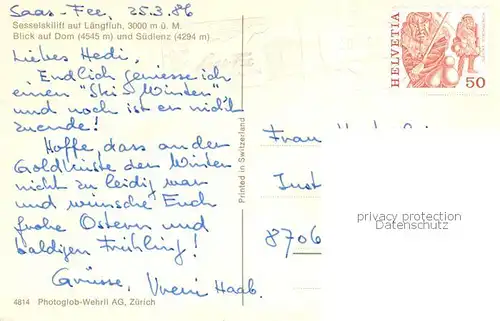 Saas-Fee, 25.3.86
Sesselskilift auf Längfluh, 3000 m ü. M.
Blick auf Dom (4545 m) und Südlenz (4294 m)
Liebes Hedi,
Endlich geniesse ich
einen "Ski-Winter"
und noch ist er nicht
zuende!
Hoffe, dass an der
Goldküste der Winter
nicht zu leidig war
und wünsche Euch
frohe Ostern und
baldigen Frühling!
Grüsse, Vreni Haab.
4814 Photoglob-Wehrli AG, Zürich
Printed in Switzerland
HELVETIA
50
Frau
Just
8706
privacy protection
Datenschutz